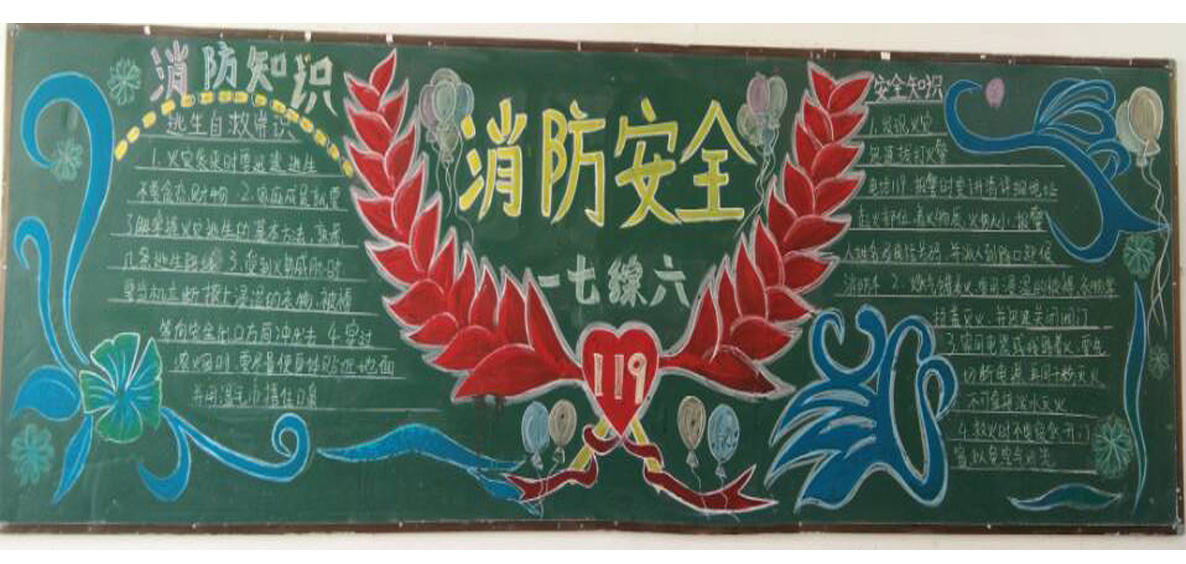 消防知识
逃生自救常识
1.火灾袭来时要迅速逃生
不要贪恋财物 2.家庭成员就要
了解掌握火灾逃生的基本方法熟悉
几条逃生路线 3.受到火势威胁时
要当机立断披上浸湿的衣物、被褥
等向安全出口方面冲出去 4.穿过
浓烟时要尽量使身体贴近地面
并用湿毛巾捂住口鼻
消防安全
一七综六
119
安全知识
1.发现火灾
迅速拨打火警
电话119 报警时要讲清详细地址
起火部位 着火物质 火势大小 报警
人姓名及电话号码 并派人到路口迎候
消防车 2.燃气罐着火 要用浸湿的被褥 衣物等
捂盖灭火 并迅速关闭阀门
3.家用电器或线路着火 要先
切断电源 再用干粉灭火
不可直接泼水灭火
4.救火时不要